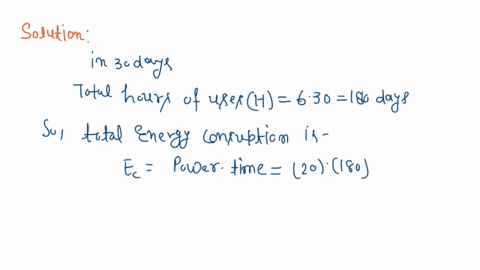 Solution:
in 30 days
Total hours of uses (H) = 6·30 = 180 days
So, total Energy consuption is -
Ec = Power·time = (20)·(180)